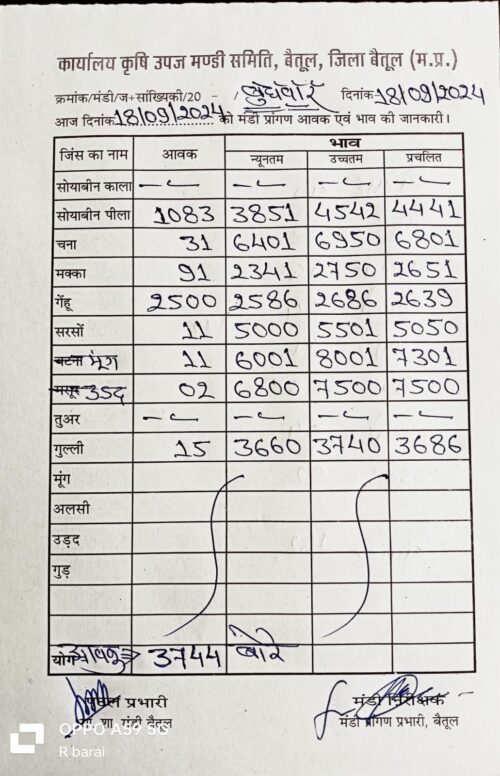 कार्यालय कृषि उपज मण्डी समिति, बैतूल, जिला बैतूल (म.प्र.)
क्रमांक/मंडी/ज+सांख्यिकी/20 - / बुधवार दिनांक 18/09/2024
आज दिनांक 18/09/2024 को मंडी प्रांगण आवक एवं भाव की जानकारी।
जिंस का नाम आवक भाव
न्यूनतम उच्चतम प्रचलित
सोयाबीन काला -- -- -- --
सोयाबीन पीला 1083 3851 4542 4441
चना 31 6401 6950 6801
मक्का 91 2341 2750 2651
गेंहू 2500 2586 2686 2639
सरसों 11 5000 5501 5050
बटना मूंग 11 6001 8001 7301
मसूर उड़द 02 6800 7500 7500
तुअर -- -- -- --
गुल्ली 15 3660 3740 3686
मूंग
अलसी
उड़द
गुड़
योग आवक 3744 बोरे
प्रभारी मंडी निरीक्षक
शा. मंडी बैतूल मंडी प्रांगण प्रभारी, बैतूल
OPPO A59 5G
R barai